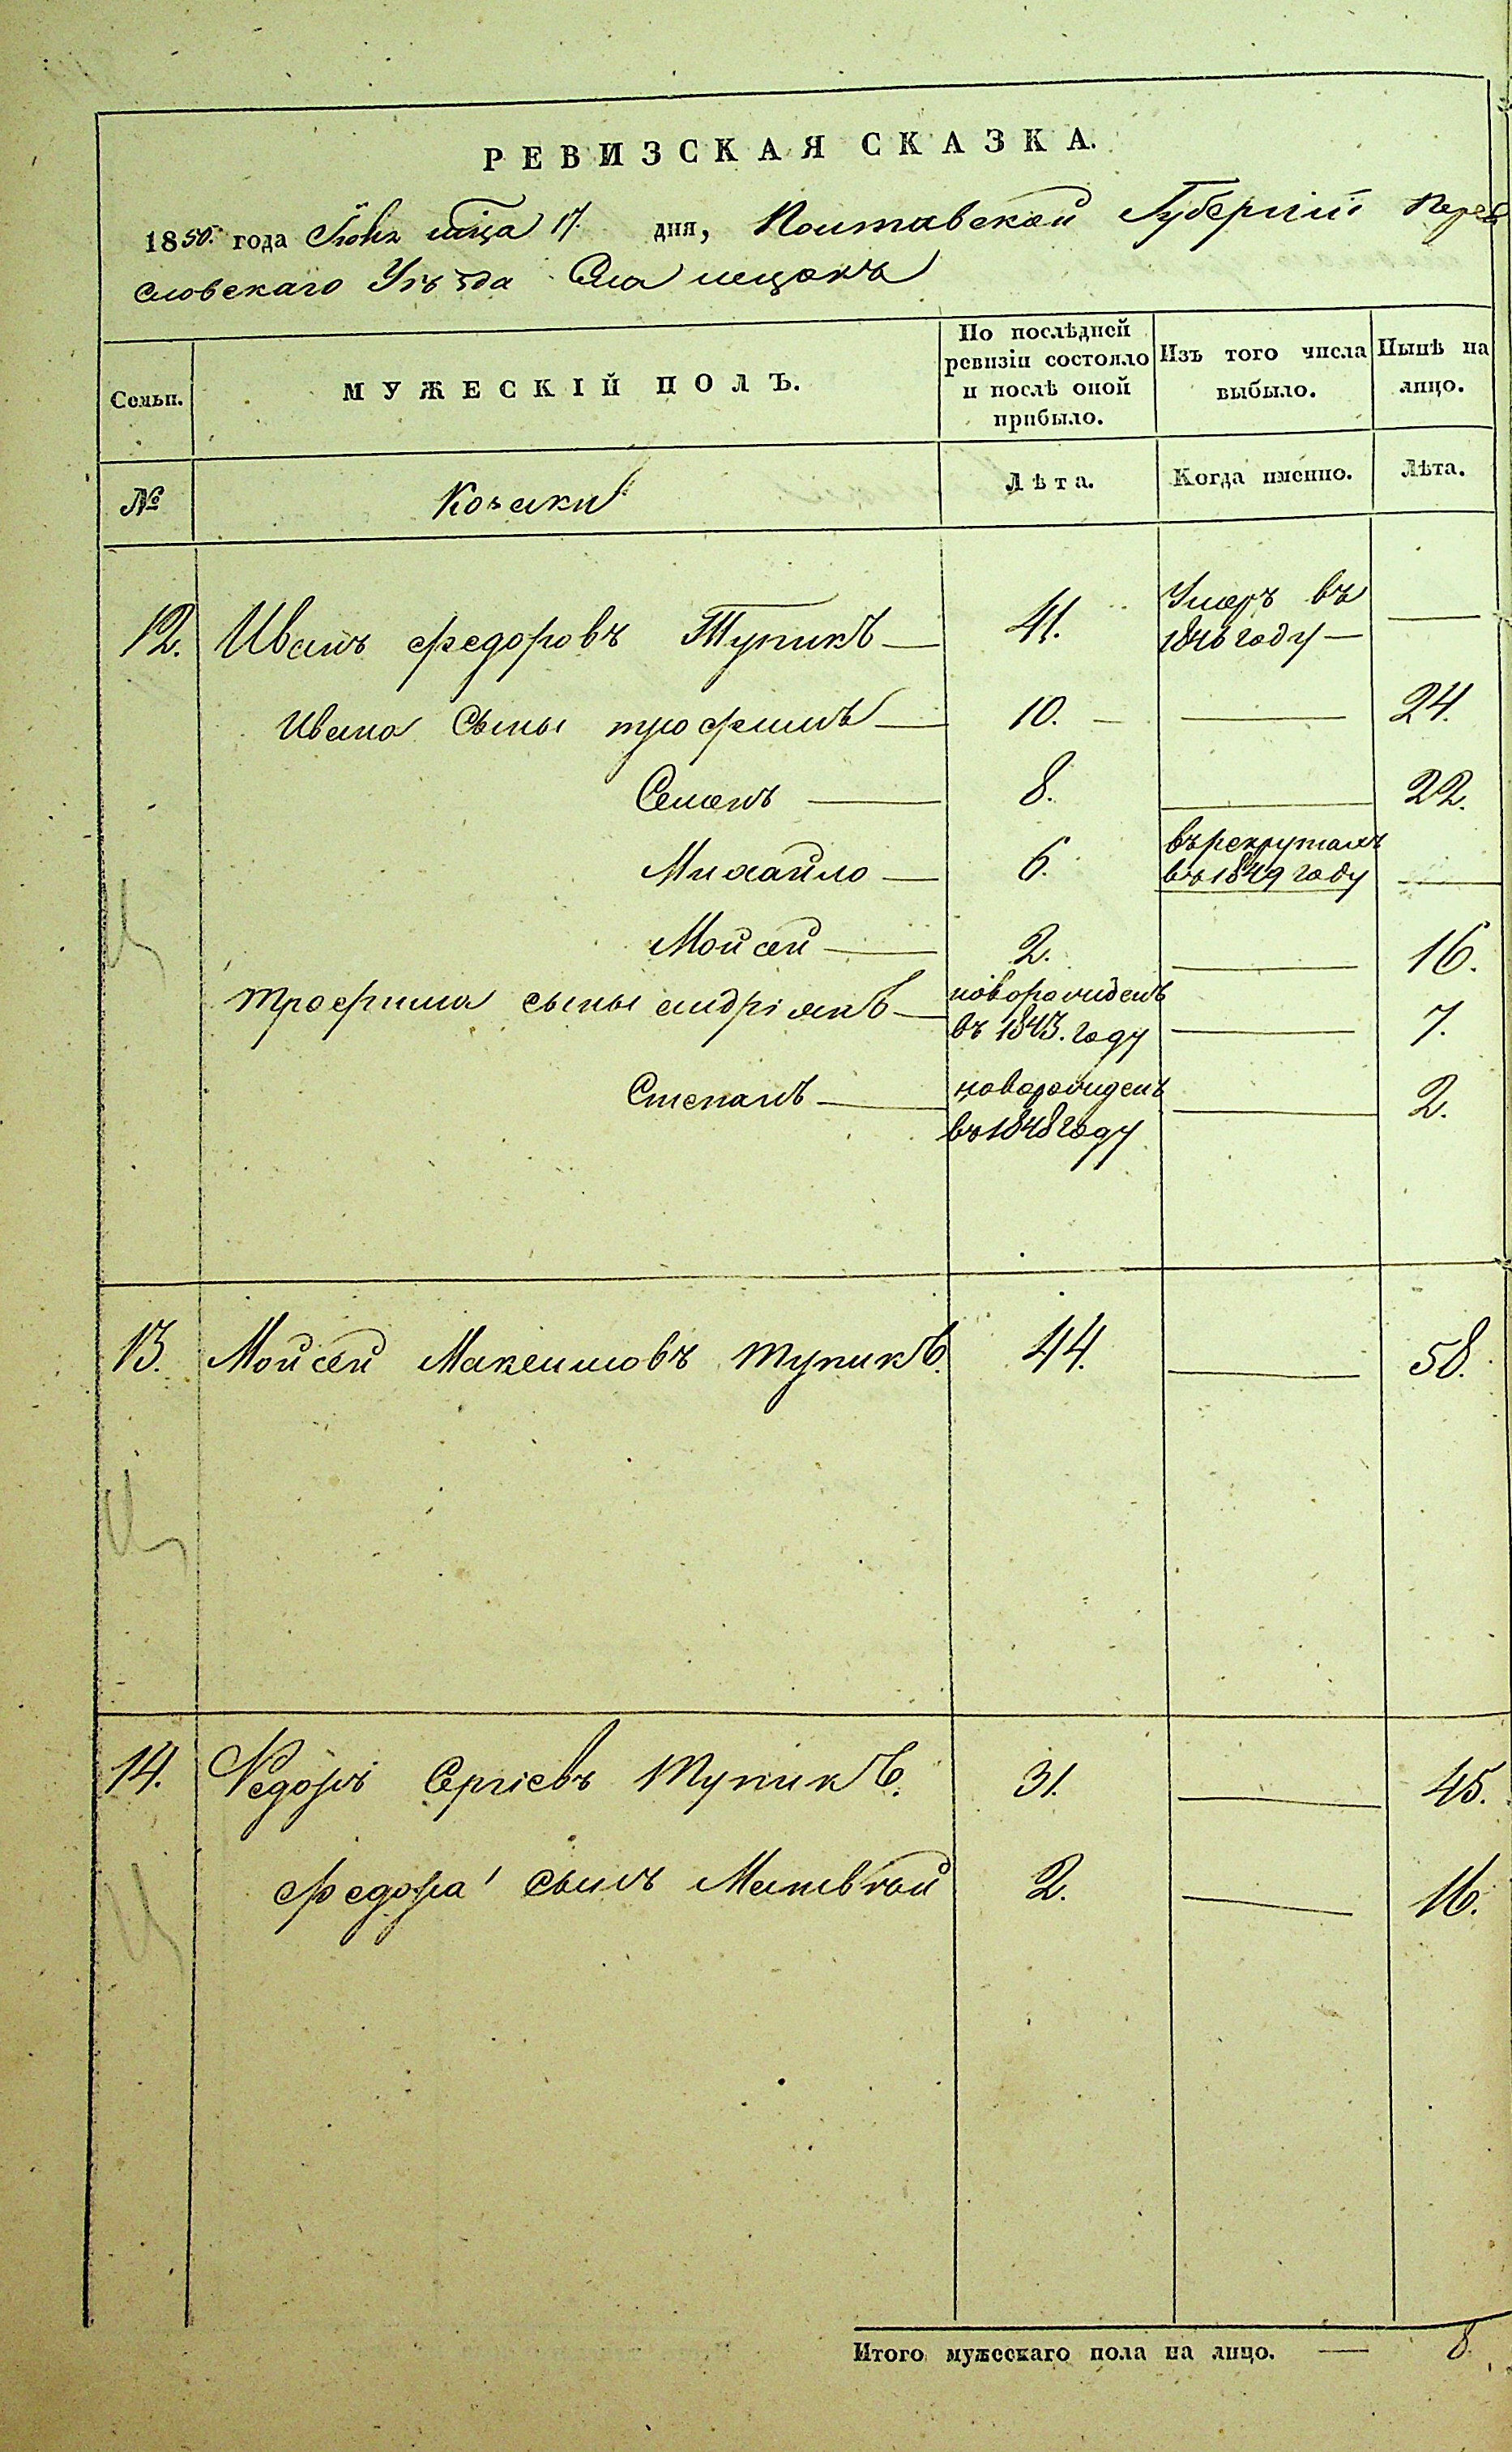 РЕВИЗСКАЯ СКАЗКА.
1850. года Іюня мца 17. дня, Полтавской Губерніи Перея
словскаго Уѣзда Села
Семьи.
МУЖЕСКІЙ ПОЛЪ.
По послѣдней
ревизіи состояло
и послѣ оной
прибыло.
Изъ того числа
выбыло.
Нынѣ на
лицо.
№
Козаки
Лѣта.
Когда именно.
Лѣта.
12. Иванъ Федоровъ Тупикъ — 41. Умеръ въ
1846 году — —
Ивана Сыны трофимъ — 10. — — 24.
Семенъ — 8. — 22.
Михайло — 6. въ рекрутахъ
въ 1849 году —
Мойсей — 2. — 16.
трофима сыны андріянъ — новорожденъ
въ 1843. году — 7.
Степанъ — новорожденъ
въ 1848 году — 2.
13. Мойсей Максимовъ тупикъ. 44. — 58.
14. Федоръ Сергіевъ Тупикъ. 31. — 45.
Федора сынъ Матвѣй 2. — 16.
Итого мужескаго пола на лицо. — 8